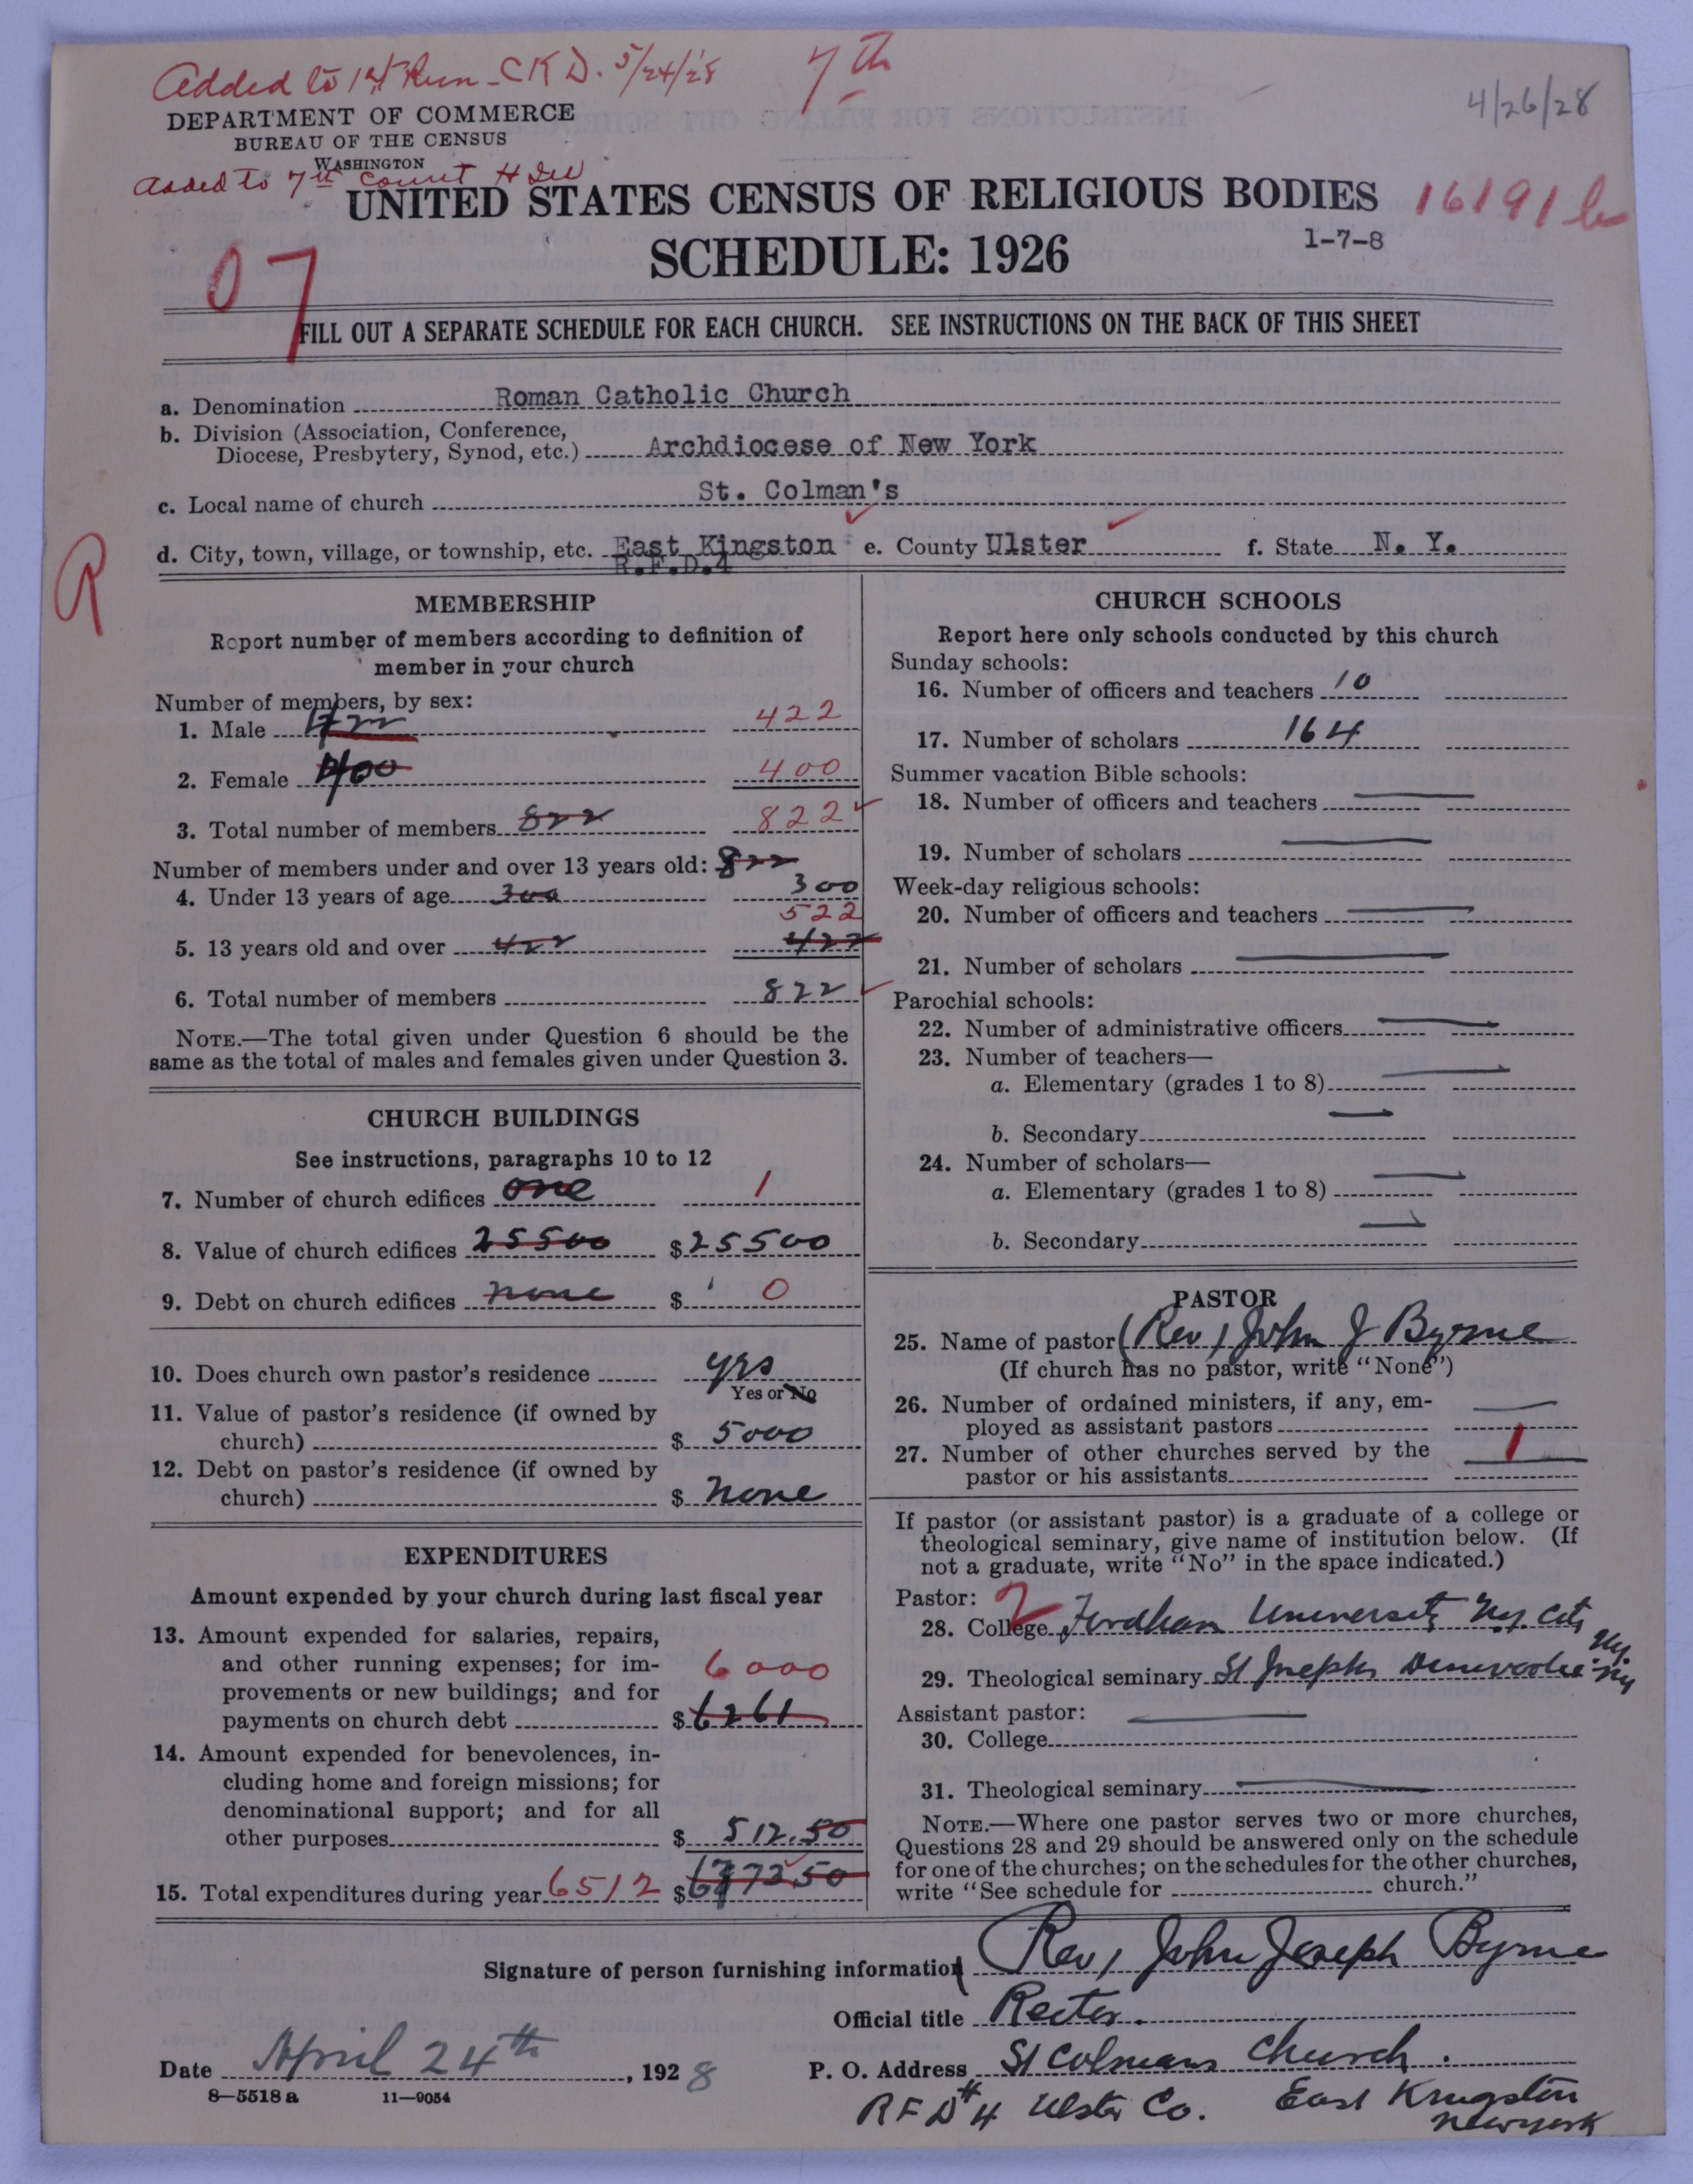 Added to 1st Run - C K D. 5/24/28
7th
4/26/28
DEPARTMENT OF COMMERCE
BUREAU OF THE CENSUS
WASHINGTON
Added to 7th count
UNITED STATES CENSUS OF RELIGIOUS BODIES
16191b
1-7-8
SCHEDULE: 1926
07
FILL OUT A SEPARATE SCHEDULE FOR EACH CHURCH. SEE INSTRUCTIONS ON THE BACK OF THIS SHEET
a. Denomination Roman Catholic Church
b. Division (Association, Conference,
Diocese, Presbytery, Synod, etc.) Archdiocese of New York
c. Local name of church St. Colman's
d. City, town, village, or township, etc. East Kingston e. County Ulster f. State N. Y.
R.F.D.4
R
MEMBERSHIP
Report number of members according to definition of
member in your church
Number of members, by sex:
1. Male 422 422
2. Female 400 400
3. Total number of members 822 822
Number of members under and over 13 years old: 822
4. Under 13 years of age 300 300
522
5. 13 years old and over 422 422
6. Total number of members 822
NOTE.—The total given under Question 6 should be the
same as the total of males and females given under Question 3.
CHURCH BUILDINGS
See instructions, paragraphs 10 to 12
7. Number of church edifices one 1
8. Value of church edifices 25500 $25500
9. Debt on church edifices none $ 0
10. Does church own pastor's residence yes
Yes or No
11. Value of pastor's residence (if owned by
church) $ 5000
12. Debt on pastor's residence (if owned by
church) $ none
EXPENDITURES
Amount expended by your church during last fiscal year
13. Amount expended for salaries, repairs,
and other running expenses; for im-
6000
provements or new buildings; and for
payments on church debt $6261
14. Amount expended for benevolences, in-
cluding home and foreign missions; for
denominational support; and for all
other purposes $ 512.50
15. Total expenditures during year 6512 $6773.50
CHURCH SCHOOLS
Report here only schools conducted by this church
Sunday schools:
16. Number of officers and teachers 10
17. Number of scholars 164
Summer vacation Bible schools:
18. Number of officers and teachers
19. Number of scholars
Week-day religious schools:
20. Number of officers and teachers
21. Number of scholars
Parochial schools:
22. Number of administrative officers
23. Number of teachers—
a. Elementary (grades 1 to 8)
b. Secondary
24. Number of scholars—
a. Elementary (grades 1 to 8)
b. Secondary
PASTOR
25. Name of pastor (Rev) John J Byrne
(If church has no pastor, write "None")
26. Number of ordained ministers, if any, em-
ployed as assistant pastors
27. Number of other churches served by the 1
pastor or his assistants
If pastor (or assistant pastor) is a graduate of a college or
theological seminary, give name of institution below. (If
not a graduate, write "No" in the space indicated.)
Pastor: 2
28. College Fordham University N.Y. City
N.Y.
29. Theological seminary St Josephs Dunwoodie N.Y.
Assistant pastor:
30. College
31. Theological seminary
NOTE.—Where one pastor serves two or more churches,
Questions 28 and 29 should be answered only on the schedule
for one of the churches; on the schedules for the other churches,
write "See schedule for church."
Signature of person furnishing information (Rev) John Joseph Byrne
Official title Rector.
Date April 24th, 1928
P. O. Address St Colmans Church.
8—5518 a 11—9054
RFD #4 Ulster Co. East Kingston
New York